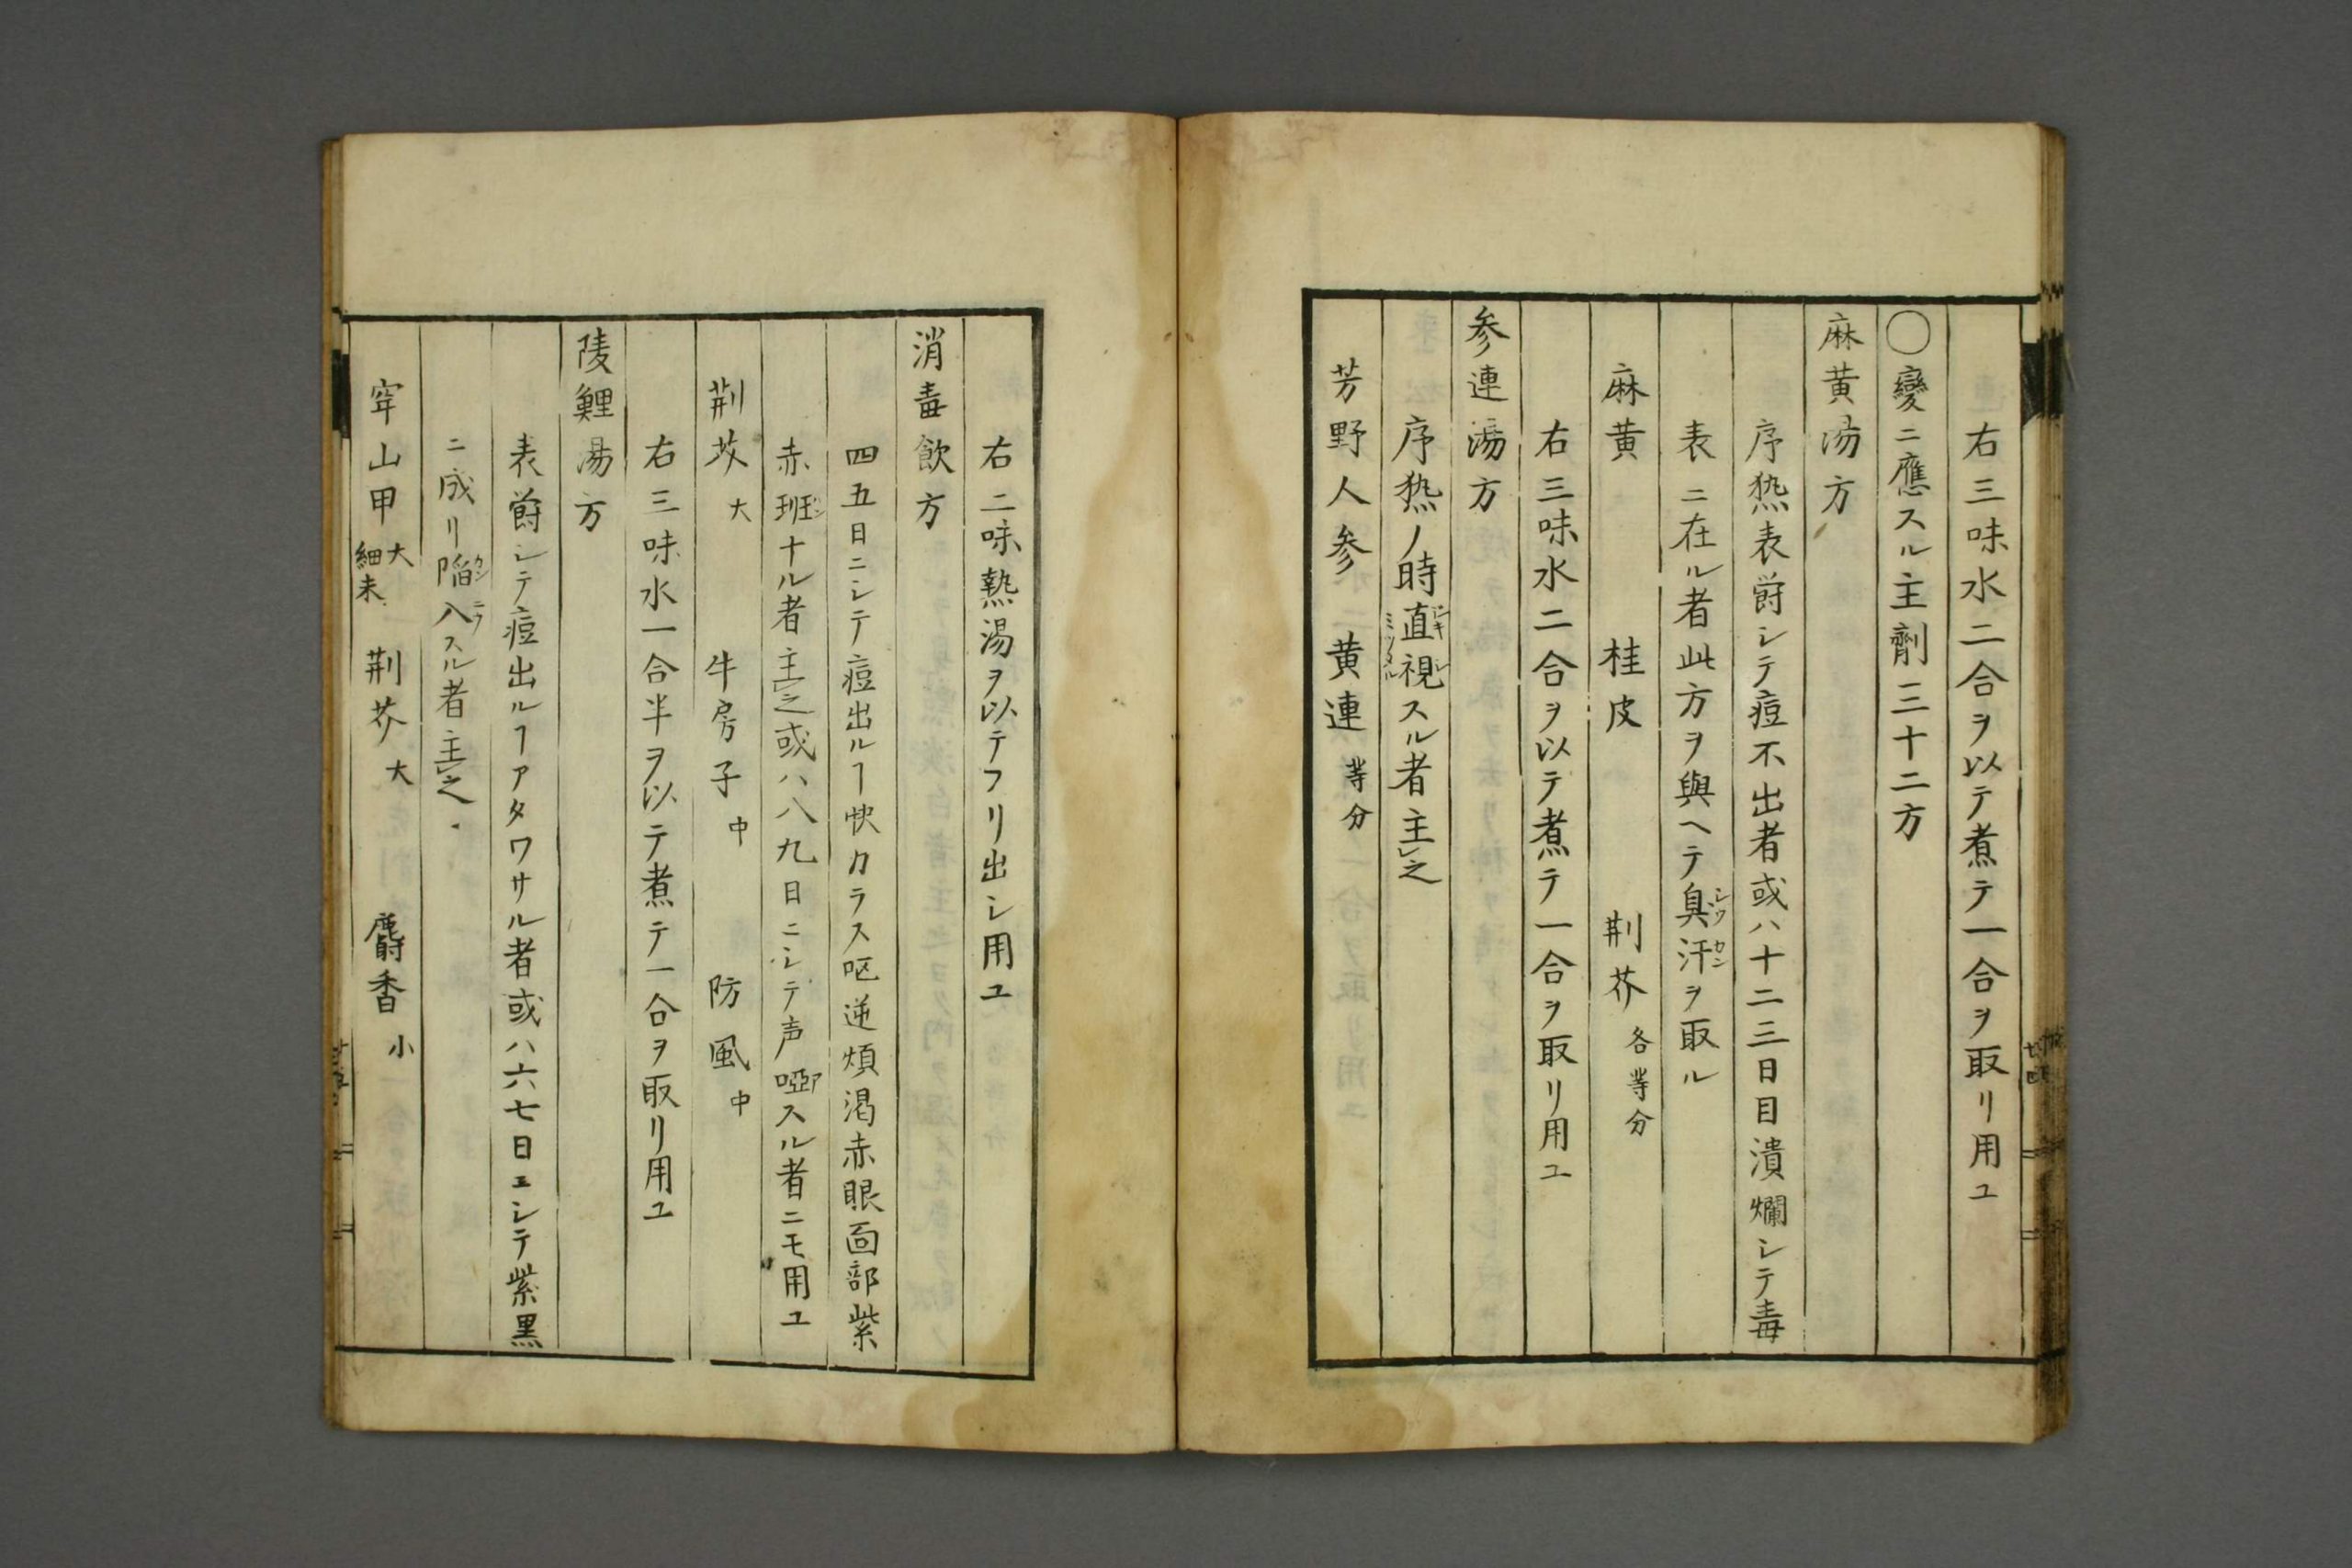 右三味水二合ヲ以テ煮テ一合ヲ取リ用ユ
〇變ニ應スル主劑三十二方
麻黄湯方
序熱表欝シテ痘不出者或ハ十二三日目潰爛シテ毒
表ニ在ル者此方ヲ與ヘテ臭汗ヲ取ル
麻黄 桂皮 荆芥 各等分
右三味水二合ヲ以テ煮テ一合ヲ取リ用ユ
参連湯方
序熱ノ時直視スル者主之
芳野人参 黄連 等分
右二味熱湯ヲ以テフリ出シ用ユ
消毒飲方
四五日ニシテ痘出ルヿ快カラス呕逆煩渇赤眼面部紫
赤班ナル者主之或ハ八九日ニシテ声啞スル者ニモ用ユ
荆芥 大 牛房子 中 防風 中
右三味水一合半ヲ以テ煮テ一合ヲ取リ用ユ
陵鯉湯方
表欝シテ痘出ルヿアタワサル者或ハ六七日ニシテ紫黒
ニ成リ陥入スル者主之
穿山甲 大 細末 荆芥 大 麝香 小